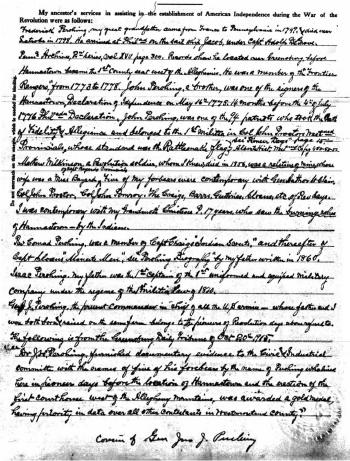 My ancestor's services in assisting in the establishment of America Independence during the War of the
Revolution were as follows:
Frederick Pershing my great grandfather came from France to Pennsylvania in 1749. & died near
Latrobe in 1798. He arrived at Phila on the sail ship Jacob, under Capt Adolf
Penn'a Archives, 2nd series, Vol XVII page 300. Records show he located near Greensburg before
Hannastown became the 1st County seat west of the Alleghenies. He was a member of the Frontier
Rangers from 1773 to 1778. John Pershing, a brother, was one of the signers of the
Hannastown, Declaration of Independence on May 16th 1775. 14 months before the 4th of July
1776 Phila Declaration, John Pershing, was one of the patriots who took the Oath
of Fidelity & Allegiance and belonged to the 1st Militia in Col John Proctor
Provincials, whose standard was the Rattlesnake flag.
Mathew Wilkinson a Revolution soldier, whom I heard in 1856, was a relative
wife was a Miss Bryans. Five of my forbears were contemporary with Gen Arthur St Clair,
Col John Proctor, Col John Pomroy. The Craigs, Barrs, Guthries, Sloans etc of those days.
I was contemporary with my Grandaunt Christina P. 17 years who saw the burning
of Hannastown by the Indians.
Rev Conrad Pershing, was a member of Capt Craig's "Indian Scouts," and thereafter of
Capt Sloan's "Minute Men", see Pershing Biography by my father written in 1860.
Isaac Pershing, my father was 1st Captain of the 1st uniformed and equiped military
company under the regime of the Militia Law of 1800.
Gen J.J. Pershing, the present Commander in chief of all the U.S. armies whose father and I
was both born & raised on the same farm belongs to the pioneers of Revolution days above refered to.
The following is from the Greensburg Daily Tribune of Oct 20th 1915.
Dr. J.H. Pershing, furnished documentary evidence to the Civic & Industrial
committee with the names of five of his forebears by the name of Pershing who lived
here in pioneer days before the location of Hannastown and the erection of the
first courthouse west of the Allegheny Mountains, was awarded a gold medal,
having priority in date over all other contestants in Westmoreland County."
Cousin of Gen Jno J. Pershing